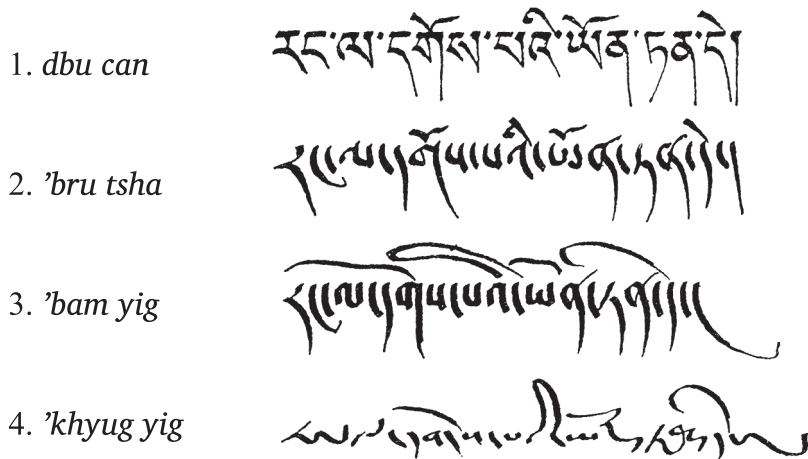 1. dbu can རང་ལ་དགོས་པའི་ཡོན་ཏན་དེ།
2. ’bru tsha རང་ལ་དགོས་པའི་ཡོན་ཏན་དེ།
3. ’bam yig རང་ལ་དགོས་པའི་ཡོན་ཏན་དེ།
4. ’khyug yig